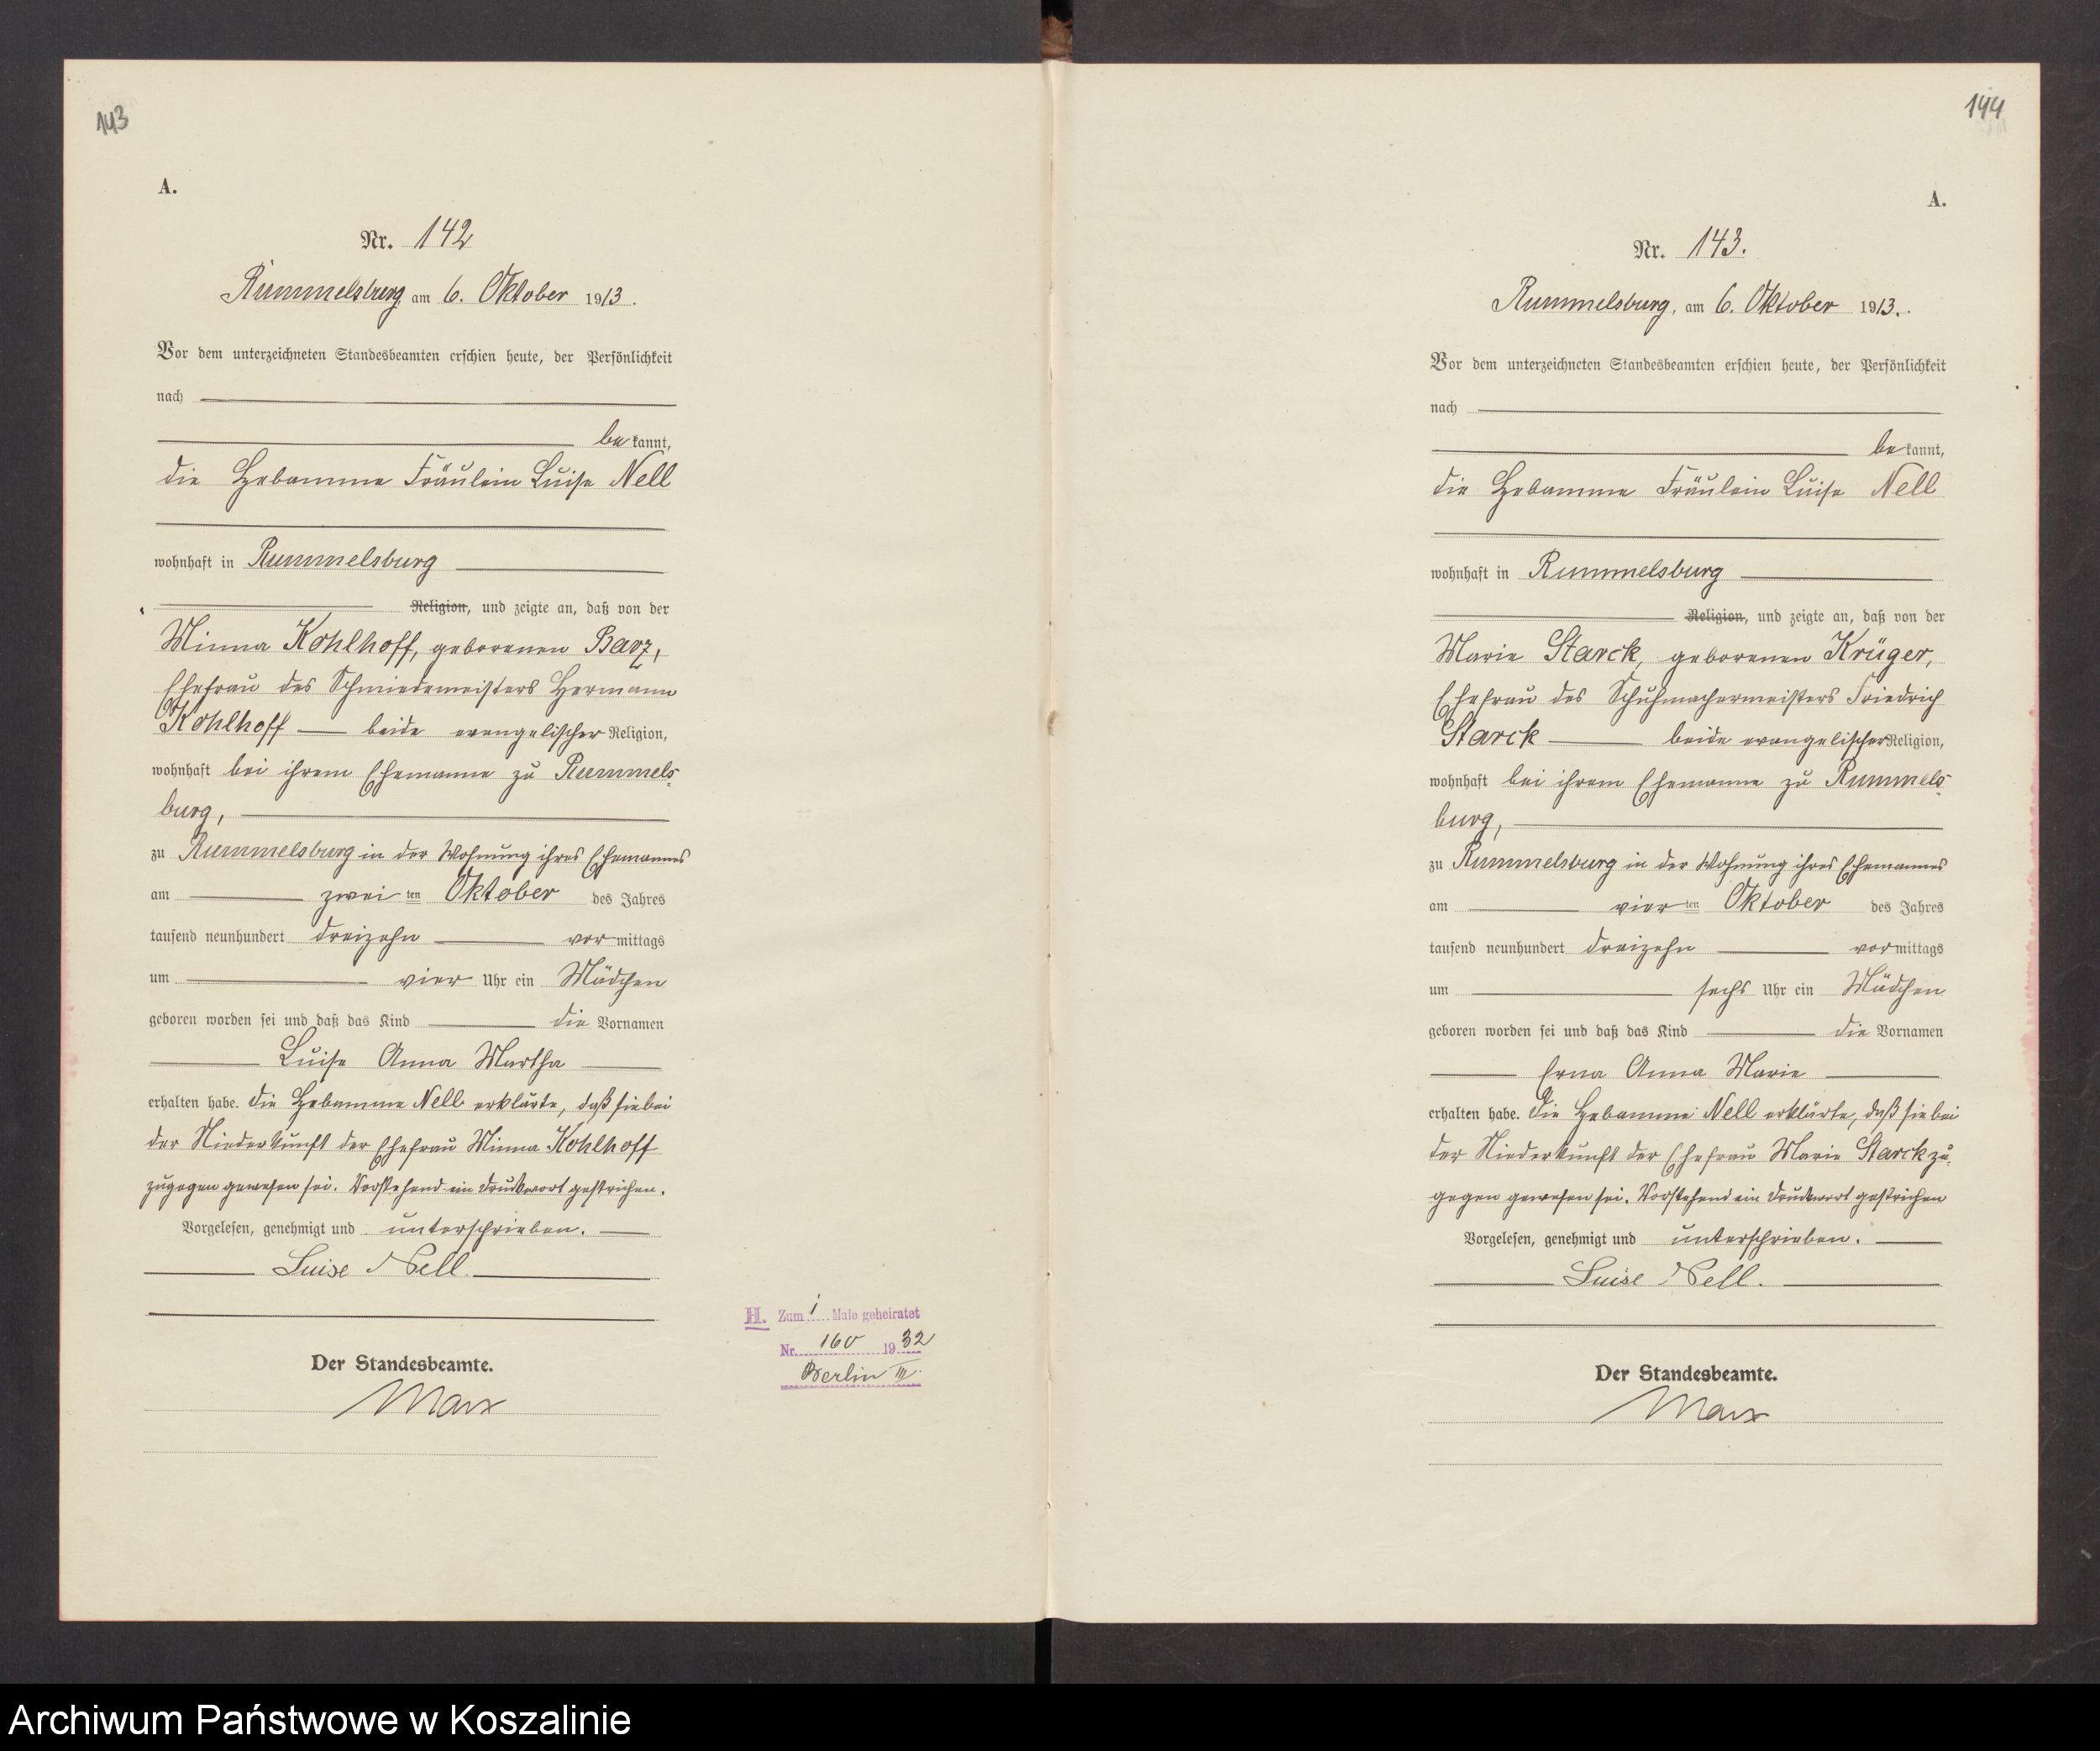 143
A.
Nr. 142
Rummelsburg, am 6. Oktober 1913.
Vor dem unterzeichneten Standesbeamten erschien heute, der Persönlichkeit
nach
bekannt,
die Hebamme Fräulein Luise Nell
wohnhaft in Rummelsburg
Religion, und zeigte an, daß von der
Minna Kohlhoff, geborenen Barz,
Ehefrau des Schmiedemeisters Hermann
Kohlhoff beide evangelischer Religion,
wohnhaft bei ihrem Ehemanne zu Rummels-
burg,
zu Rummelsburg in der Wohnung ihres Ehemannes
am zweiten Oktober des Jahres
tausend neunhundert dreizehn vormittags
um vier Uhr ein Mädchen
geboren worden sei und daß das Kind die Vornamen
Luise Anna Martha
erhalten habe. Die Hebamme Nell erklärte, daß sie bei
der Niederkunft der Ehefrau Minna Kohlhoff
zugegen gewesen sei. Vorstehend ein Druckwort gestrichen.
Vorgelesen, genehmigt und unterschrieben.
Luise Nell.
Der Standesbeamte.
Marx
H. Zum 1 Male geheiratet
Nr. 160 1932
Berlin III.
144
A.
Nr. 143.
Rummelsburg, am 6. Oktober 1913.
Vor dem unterzeichneten Standesbeamten erschien heute, der Persönlichkeit
nach
bekannt,
die Hebamme Fräulein Luise Nell
wohnhaft in Rummelsburg
Religion, und zeigte an, daß von der
Marie Starck, geborenen Krüger,
Ehefrau des Schuhmachermeisters Friedrich
Starck beide evangelischer Religion,
wohnhaft bei ihrem Ehemanne zu Rummels-
burg,
zu Rummelsburg in der Wohnung ihres Ehemannes
am vierten Oktober des Jahres
tausend neunhundert dreizehn vormittags
um sechs Uhr ein Mädchen
geboren worden sei und daß das Kind die Vornamen
Erna Anna Marie
erhalten habe. Die Hebamme Nell erklärte, daß sie bei
der Niederkunft der Ehefrau Marie Starck zu-
gegen gewesen sei. Vorstehend ein Druckwort gestrichen
Vorgelesen, genehmigt und unterschrieben.
Luise Nell.
Der Standesbeamte.
Marx
Archiwum Państwowe w Koszalinie